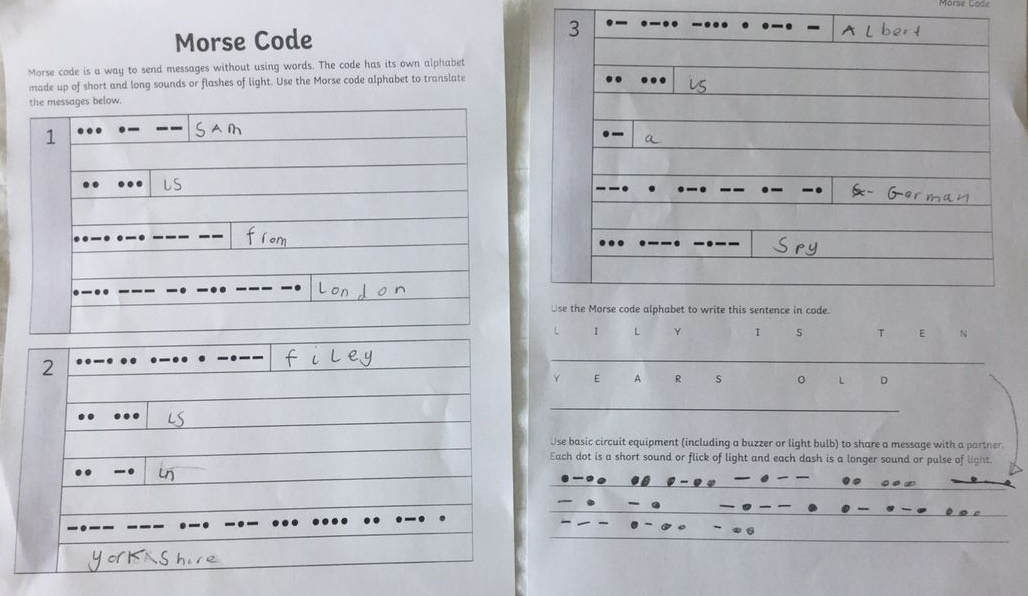 Morse Code
Morse code is a way to send messages without using words. The code has its own alphabet
made up of short and long sounds or flashes of light. Use the Morse code alphabet to translate
the messages below.
1
••• •− −− SAm
•• ••• is
••−• •−• −−− −− from
•−•• −−− −• −•• −−− −• London
2
••−• •• •−•• • −•−− filey
•• ••• is
•• −• in
−•−− −−− •−• −•− ••• •••• •• •−• •
yorkshire
Morse Code
3
•− •−•• −••• • •−• − ALbert
•• ••• is
•− a
−−• • •−• −− •− −• German
••• •−−• −•−− Spy
Use the Morse code alphabet to write this sentence in code.
L I L Y I S T E N
Y E A R S O L D
Use basic circuit equipment (including a buzzer or light bulb) to share a message with a partner.
Each dot is a short sound or flick of light and each dash is a longer sound or pulse of light.
•−•• •• •−•• −•−− •• •••
− • − • −•−− • •− •−• •••
−−− •−•• −••